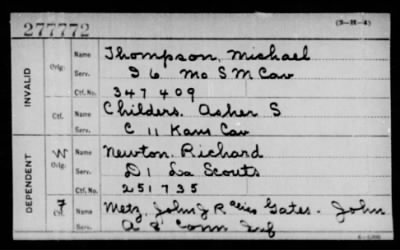 277772 (3-H-4)
INVALID
Orig. Name Thompson, Michael
Serv. I 6 Mo S M Cav
Ctf. No. 347 409
Ctf. Name Childers, Asher S
Serv. C 11 Kans Cav
DEPENDENT
W Orig. Name Newton, Richard
Serv. D 1 La Scouts
Ctf. No. 251735
7 Ctf. Name Metz, John J Alias Gates, John
Serv. A 8 Conn Inf